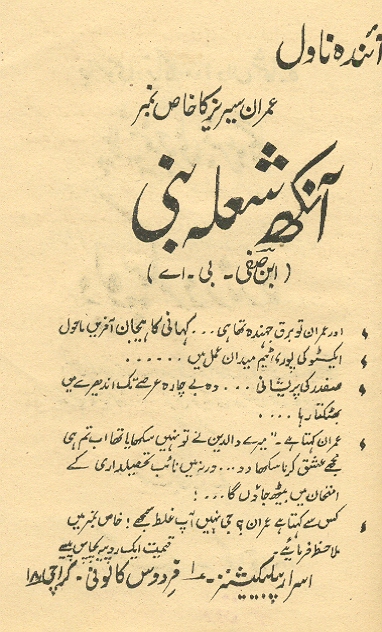 آئندہ ناول
عمران سیریز کا خاص نمبر
آنکھ شعلہ بنی
(ابن صفی - بی - اے)
اور عمران تو برق جہندہ تھا ہی ... کہانی کا ہیجان آفریں ماحول
ایکسٹو کی پوری ٹیم میدان عمل میں ......
صفدر کی پریشانی ... وہ بے چارہ عرصے تک اندھیرے میں
بھٹکتا رہا ....
عمران کہتا ہے - "میرے والدین نے تو نہیں سکھایا تھا اب تم ہی
مجھے عشق کرنا سکھا دو ... ورنہ میں نائب تحصیلداری کے
امتحان میں بیٹھ جاؤں گا ...!
کس سے کہتا ہے عمران؟ جی نہیں آپ غلط سمجھے! خاص نمبر میں
ملاحظہ فرمائیے - قیمت ایک روپیہ پچاس پیسے
اسرار پبلیکیشنز - ۱/۰ فردوس کالونی - کراچی ۱۸